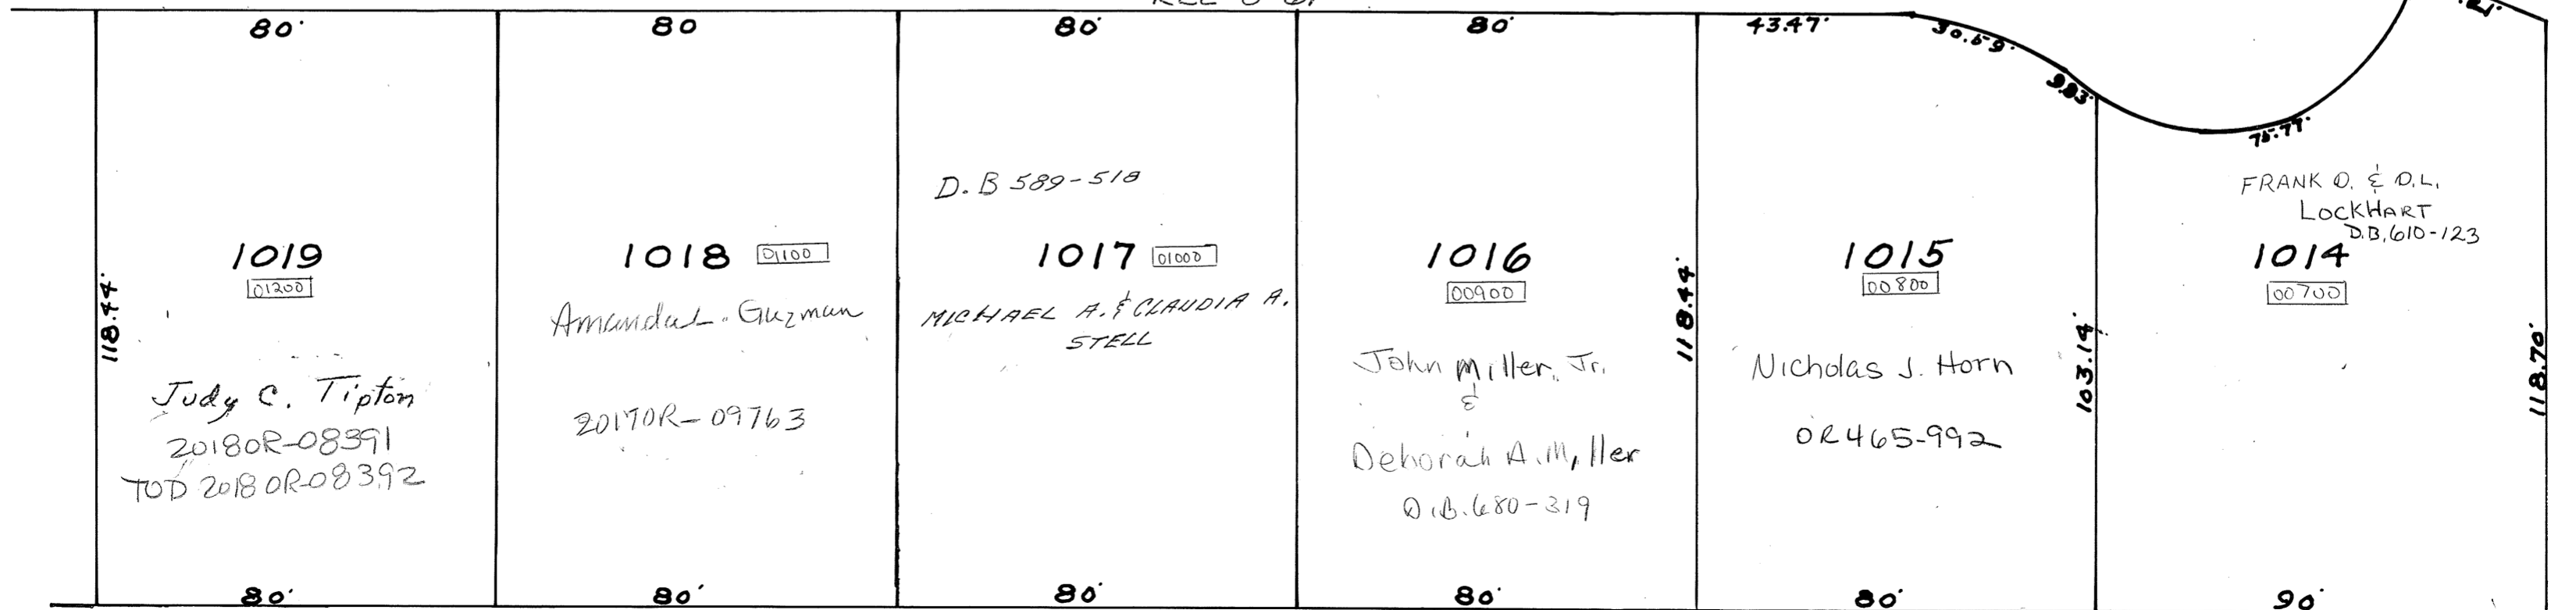 80'
80
80'
80'
43.47'
30.59'
9.83'
75.77'
118.44'
1019
01200
Judy C. Tipton
2018OR-08391
TOD 2018OR-08392
80'
1018 01100
Amanda L. Guzman
2017OR-09763
80'
D.B 589-518
1017 01000
MICHAEL A. & CLAUDIA A.
STELL
80'
1016
00900
John Miller, Jr.
&
Deborah A. Miller
D.B. 680-319
80'
118.44'
1015
00800
Nicholas J. Horn
OR465-992
80'
103.14'
FRANK D. & D.L.
LOCKHART
D.B. 610-123
1014
00700
118.70'
90'